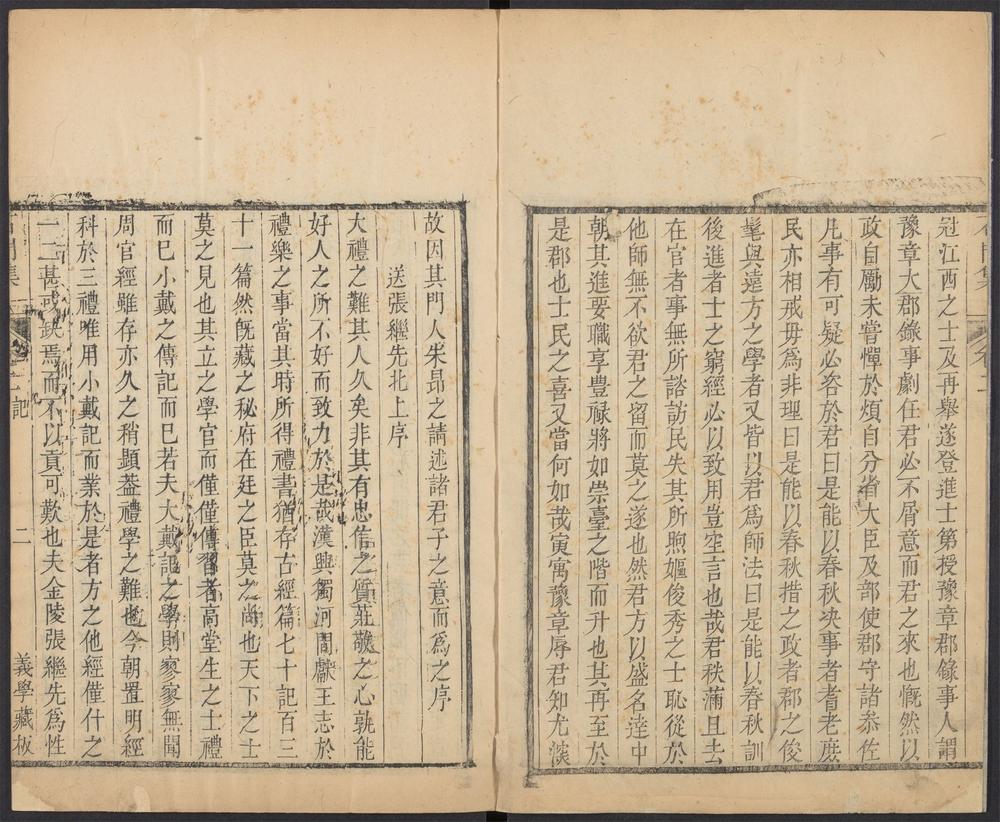 石門集 卷二
冠江西之士及再舉遂登進士第授豫章郡錄事人謂
豫章大郡錄事劇任君必不屑意而君之來也慨然以
政自勵未嘗憚於煩自分省大臣及部使郡守諸叅佐
凡事有可疑必咨於君曰是能以春秋决事者耆老庶
民亦相戒毋爲非理曰是能以春秋措之政者郡之俊
髦與遠方之學者又皆以君爲師法曰是能以春秋訓
後進者士之窮經必以致用豈空言也哉君秩滿且去
在官者事無所諮訪民失其所煦嫗俊秀之士恥從於
他師無不欲君之留而莫之遂也然君方以盛名逹中
朝其進要職享豊祿將如崇臺之階而升也其再至於
是郡也士民之喜又當何如哉寅寓豫章辱君知尤深
故因其門人朱昂之請述諸君子之意而爲之序
送張繼先北上序
大禮之難其人久矣非其有忠信之質莊敬之心孰能
好人之所不好而致力於是哉漢興獨河間獻王志於
禮樂之事當其時所得禮書猶存古經篇七十記百三
十一篇然旣藏之秘府在廷之臣莫之尚也天下之士
莫之見也其立之學官而僅僅傳習者高堂生之士禮
而巳小戴之傳記而巳若夫大戴記之學則寥寥無聞
周官經雖存亦久之稍顯葢禮學之難也今朝置明經
科於三禮唯用小戴記而業於是者方之他經僅什之
一二甚或缺焉而不以貢可歎也夫金陵張繼先爲性
石門集 卷二 記 二 義學藏板